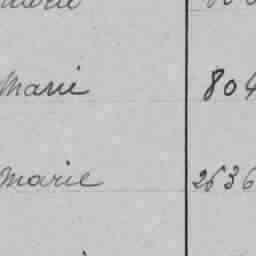 Marie 804
Marie 2636